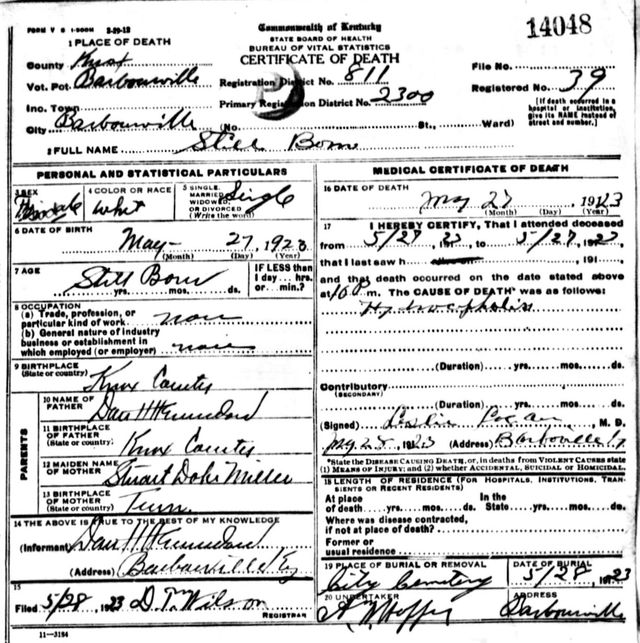 FORM V S 1-500M 2-29-12
Commonwealth of Kentucky
14048
STATE BOARD OF HEALTH
BUREAU OF VITAL STATISTICS
CERTIFICATE OF DEATH
1 PLACE OF DEATH
County Knox
Vot. Pct Barbourville
Inc. Town
City Barbourville (No. St., Ward)
Registration District No. 811
Primary Registration District No. 2300
File No.
Registered No. 39
[If death occurred in a hospital or institution, give its NAME instead of street and number.]
2 FULL NAME Still Born
PERSONAL AND STATISTICAL PARTICULARS
3 SEX
4 COLOR OR RACE
whit
5 SINGLE, MARRIED, WIDOWED, OR DIVORCED (Write the word)
Single
6 DATE OF BIRTH
May 27, 1923
(Month) (Day) (Year)
7 AGE
Still Born
yrs. mos. ds.
IF LESS than 1 day... hrs. or... min.?
8 OCCUPATION
(a) Trade, profession, or particular kind of work
(b) General nature of industry business or establishment in which employed (or employer)
9 BIRTHPLACE
(State or country)
Knox County
PARENTS
10 NAME OF FATHER
11 BIRTHPLACE OF FATHER
(State or country)
Knox County
12 MAIDEN NAME OF MOTHER
Stuart Miller
13 BIRTHPLACE OF MOTHER
(State or country)
Tenn.
14 THE ABOVE IS TRUE TO THE BEST OF MY KNOWLEDGE
(Informant)
(Address) Barbourville Ky
15
Filed 5/28, 1923 D. T. Wilson
REGISTRAR
11-3184
MEDICAL CERTIFICATE OF DEATH
16 DATE OF DEATH
May 27 1923
(Month) (Day) (Year)
17 I HEREBY CERTIFY, That I attended deceased
from 5/27 23, to 5/27, 1923
that I last saw h 191
and that death occurred on the date stated above
at 10 P m. The CAUSE OF DEATH* was as follows:
Hydrocephalis
(Duration) yrs. mos. ds.
Contributory
(SECONDARY)
(Duration) yrs. mos. ds.
(Signed) Leslie Logan M. D.
28 1923 (Address) Barboville Ky
*State the DISEASE CAUSING DEATH, or, in deaths from VIOLENT CAUSES state (1) MEANS OF INJURY; and (2) whether ACCIDENTAL, SUICIDAL or HOMICIDAL.
18 LENGTH OF RESIDENCE (FOR HOSPITALS, INSTITUTIONS, TRANSIENTS OR RECENT RESIDENTS)
At place of death yrs. mos. ds. In the State yrs. mos. ds.
Where was disease contracted, if not at place of death?
Former or usual residence
19 PLACE OF BURIAL OR REMOVAL
City Cemetery
DATE OF BURIAL
5/28 1923
20 UNDERTAKER
ADDRESS
Barbourville